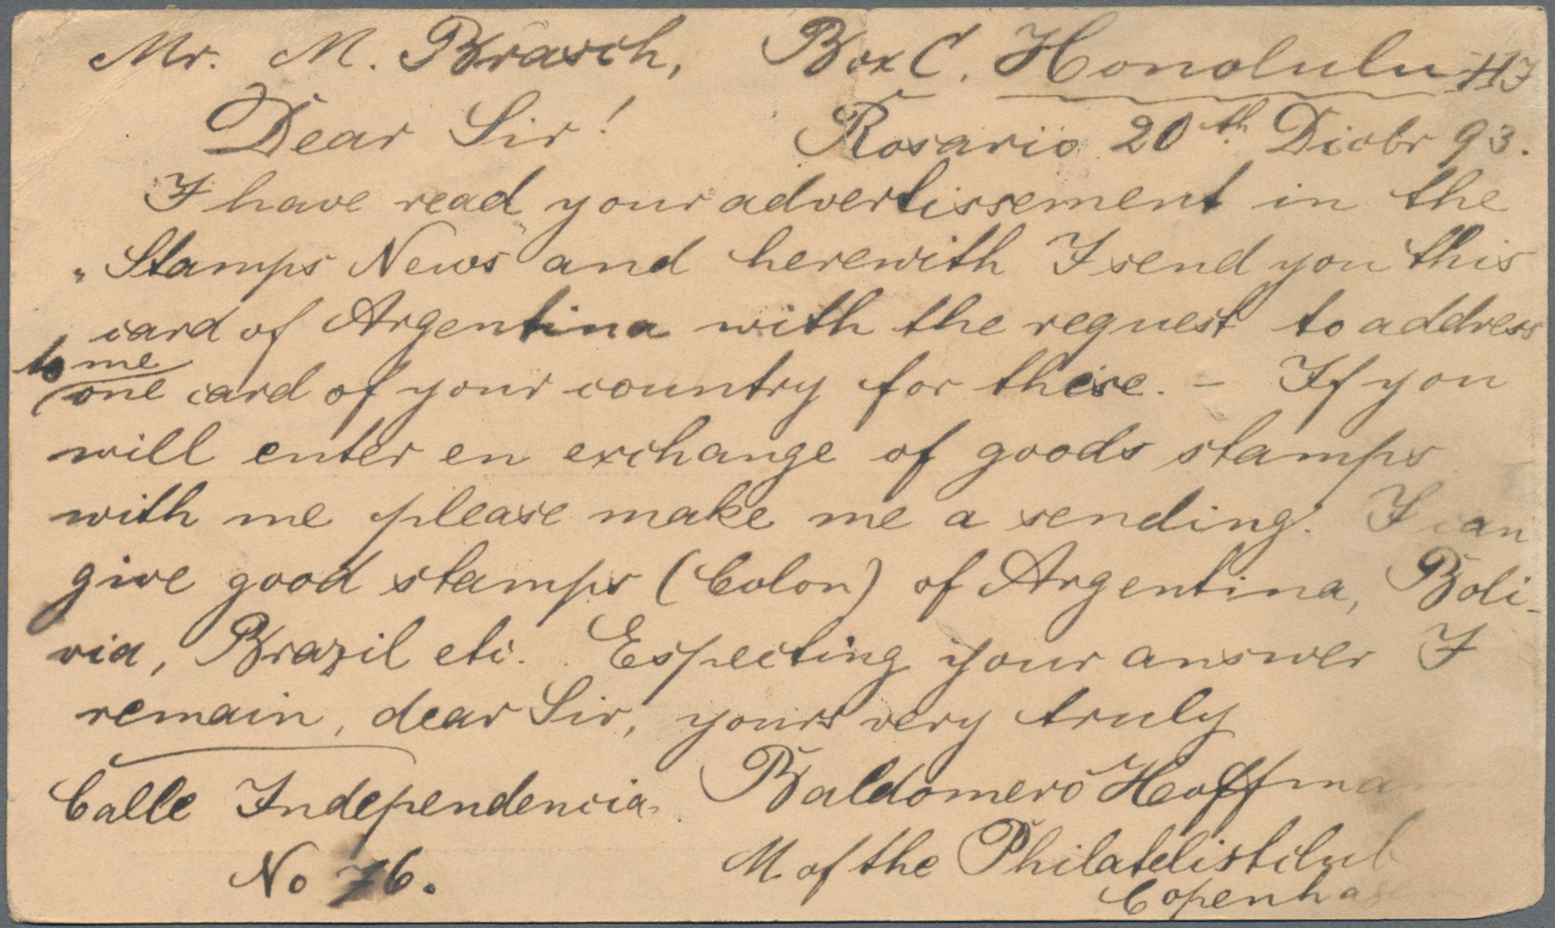 Mr. M. Brasch, Box C. Honolulu HI
Dear Sir! Rosario 20th Dicbr 93.
I have read your advertissement in the
„Stamps News" and herewith I send you this
card of Argentina with the request to address
to me
one card of your country for these. - If you
will enter en exchange of goods stamps
with me please make me a sending. I can
give good stamps (Colon) of Argentina, Boli-
via, Brazil etc. Especting your answer I
remain, dear Sir, yours very truly
Calle Independencia. Baldomero Hoffmann
No 76. M of the Philatelistclub
Copenhagen